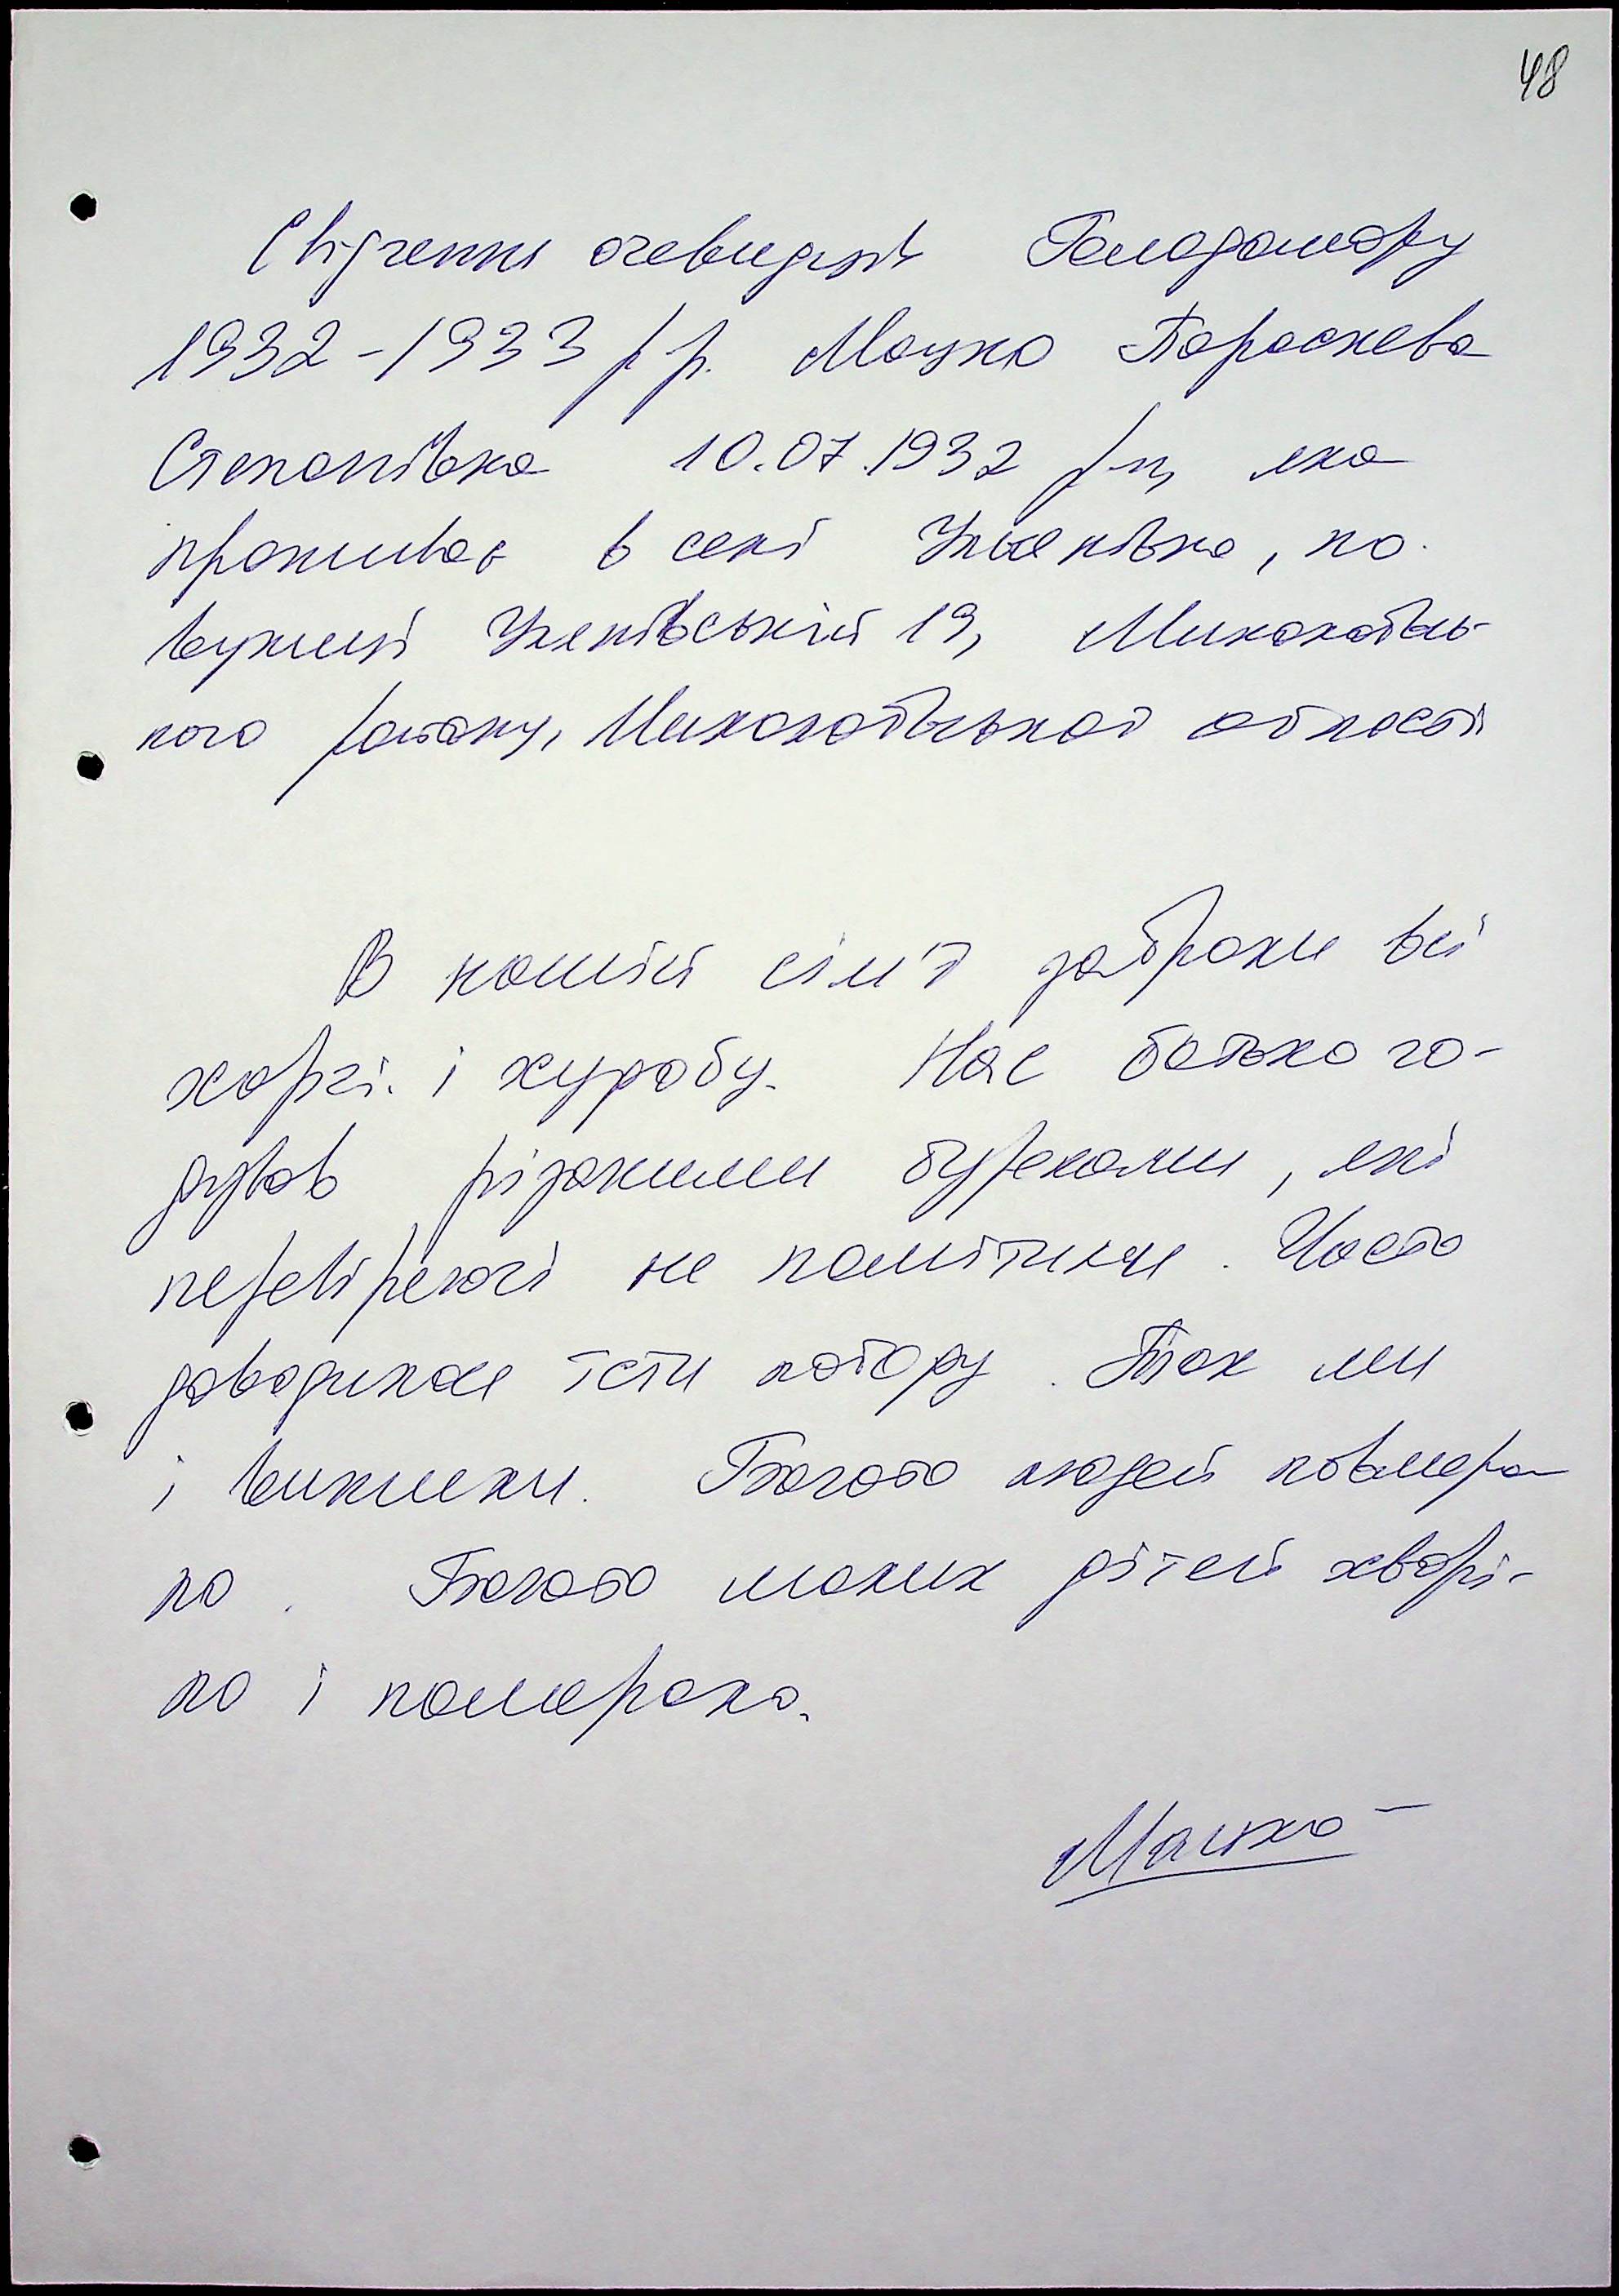 48
Свідчення очевидців Голодомору
1932-1933 р.р. Мацко Параскева
Степанівна 10.07.1932 р.н, яка
проживає в селі Улянівка, по
вулиці Улянівській 19, Миколаївсь-
кого району, Миколаївської області
В нашій сім'ї забрали всі
харчі і худобу. Нас батько го-
дував різаними буряками, які
перевіряючі не помітили. Часто
доводилося їсти лободу. Так ми
і вижили. Багато людей повмира
ло. Багато малих дітей хворі-
ло і помирало.
Мацко